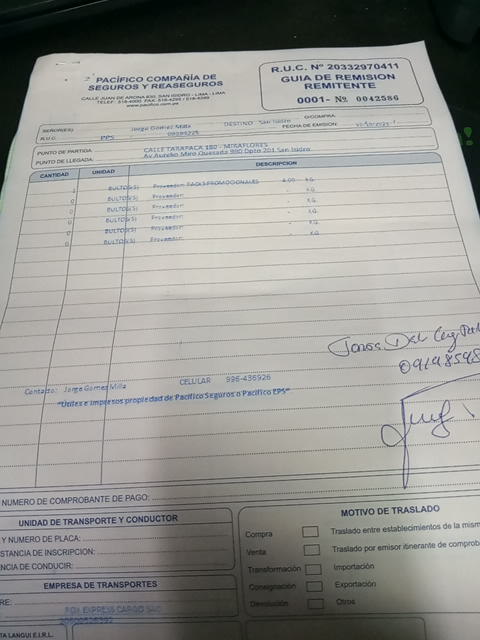 PACÍFICO COMPAÑÍA DE
SEGUROS Y REASEGUROS
CALLE JUAN DE ARONA 830, SAN ISIDRO - LIMA - LIMA
TELEF: 518-4000 FAX: 518-4295 / 518-4299
www.pacifico.com.pe
R.U.C. Nº 20332970411
GUIA DE REMISION
REMITENTE
0001- Nº 0042586
SEÑOR(ES) Jorge Gomez Milla DESTINO San Isidro O/COMPRA:
R.U.C. PPS FECHA DE EMISION:
PUNTO DE PARTIDA: CALLE TARAPACA 180 - MIRAFLORES
PUNTO DE LLEGADA: Av Aurelio Miro Quesada 980 Dpto 201 San Isidro
CANTIDAD UNIDAD DESCRIPCION
1 BULTO(S) Proveedor: PACKS PROMOCIONALES 4.00 KG.
0 BULTO(S) Proveedor: - KG.
0 BULTO(S) Proveedor: - KG.
0 BULTO(S) Proveedor: - KG.
0 BULTO(S) Proveedor: - KG.
Contacto: Jorge Gomez Milla CELULAR 996-436926
"Utiles e impresos propiedad de Pacifico Seguros o Pacifico EPS"
NUMERO DE COMPROBANTE DE PAGO:
UNIDAD DE TRANSPORTE Y CONDUCTOR
Y NUMERO DE PLACA:
STANCIA DE INSCRIPCION:
NCIA DE CONDUCIR:
EMPRESA DE TRANSPORTES
RE: FOX EXPRESS CARGO SAC
MOTIVO DE TRASLADO
Compra Traslado entre establecimientos de la mism
Venta Traslado por emisor itinerante de comproba
Transformación Importación
Consignación Exportación
Devolución Otros
TA LANGUI E.I.R.L.